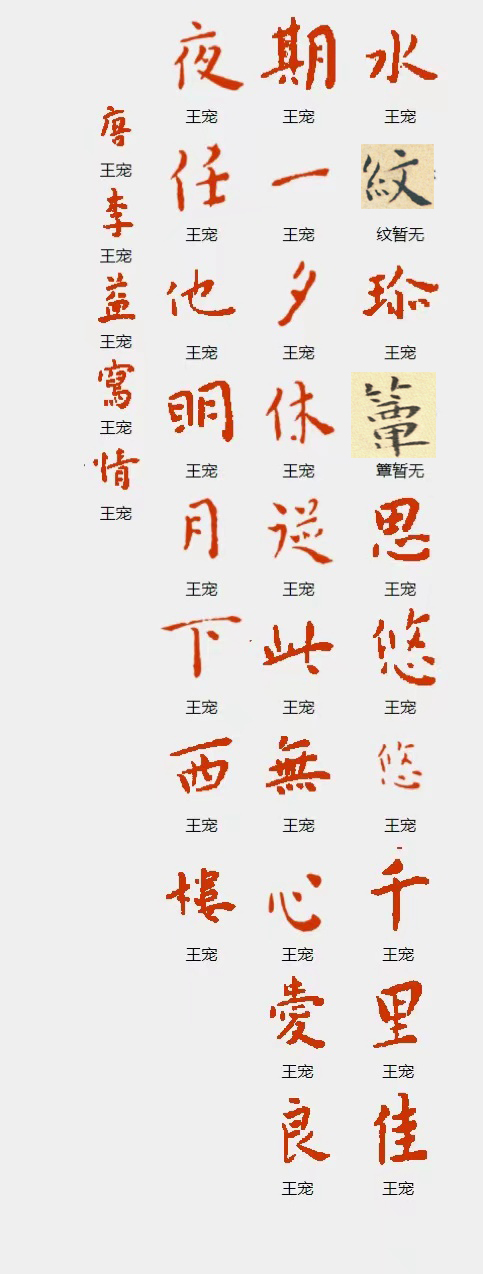 水
王宠
紋
纹暂无
珍
王宠
簟
簟暂无
思
王宠
悠
王宠
悠
王宠
千
王宠
里
王宠
佳
王宠
期
王宠
一
王宠
夕
王宠
休
王宠
從
王宠
此
王宠
無
王宠
心
王宠
愛
王宠
良
王宠
夜
王宠
任
王宠
他
王宠
明
王宠
月
王宠
下
王宠
西
王宠
樓
王宠
唐
王宠
李
王宠
益
王宠
寫
王宠
情
王宠